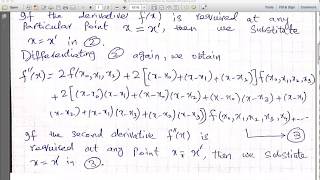 If the derivative f'(x) is required at any
Particular Point x = x', then we Substitute
x = x' in ②.
Differentiating ② again, we obtain
f''(x) = 2f(x₀, x₁, x₂) + 2[(x-x₀)+(x-x₁)+(x-x₂)] f(x₀,x₁,x₂,x₃)
+2[(x-x₀)(x-x₁)+(x-x₀)(x-x₂)+(x-x₀)(x-x₃)+(x-x₁)
(x-x₂)+(x-x₁)(x-x₃)+(x-x₂)(x-x₃)] f(x₀,x₁,x₂,x₃,x₄)+......
③
If the second derivative f''(x) is
required at any Point x = x', then we Substitute
x = x' in ③.